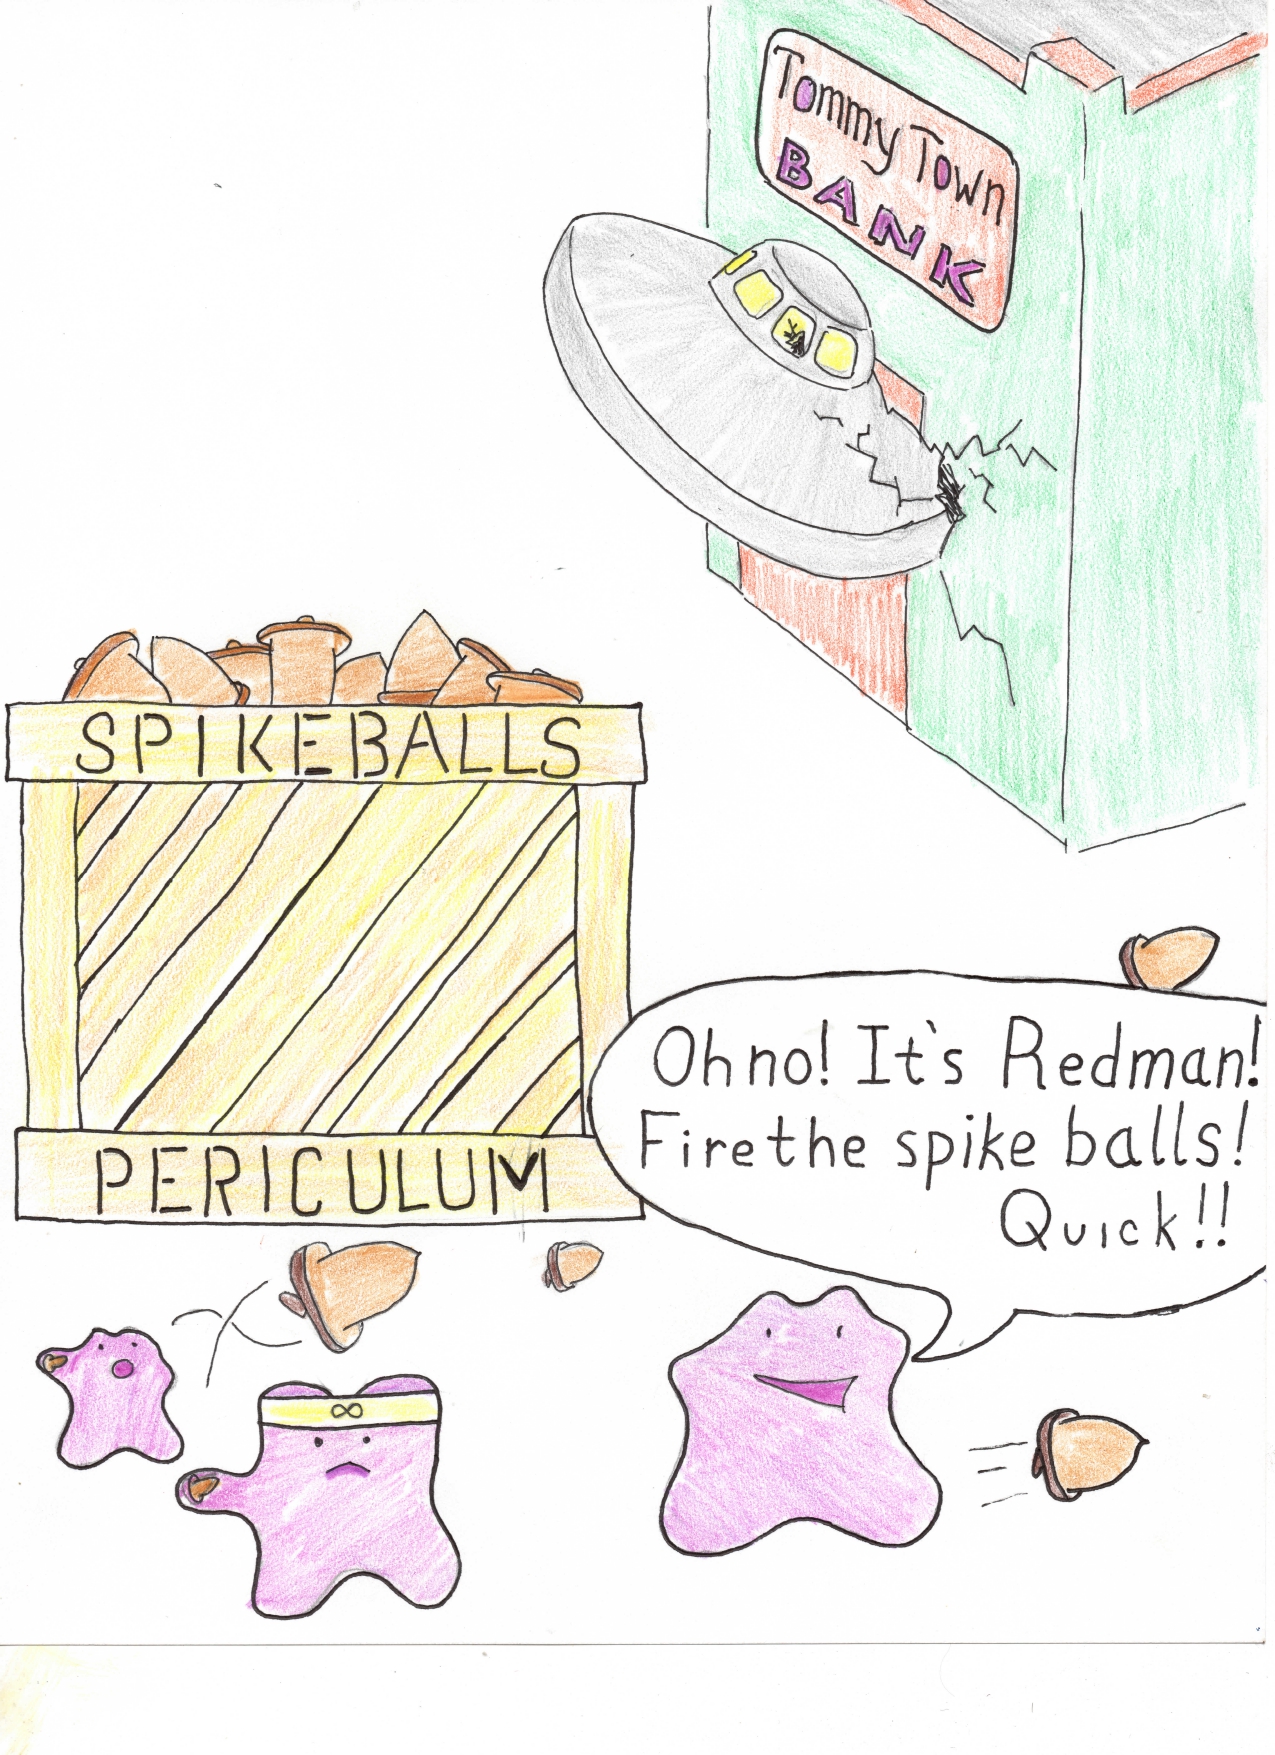 Tommy Town
BANK
SPIKEBALLS
PERICULUM
Oh no! It's Redman!
Fire the spike balls!
Quick!!
∞